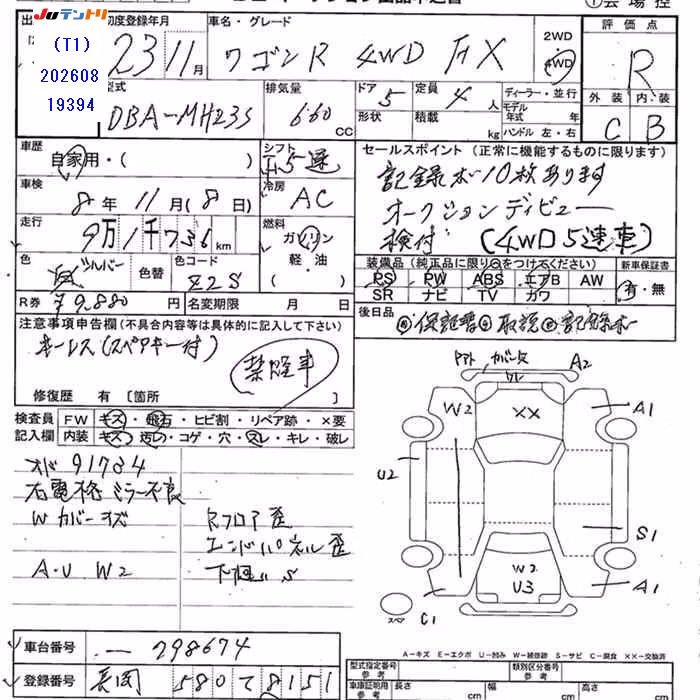 Juテントリ
(T1)
202608
19394
初度登録年月
23 11月
車名・グレード
ワゴンR 4WD FX
2WD
4WD
評価点
R
外装 内装
C B
型式
DBA-MH23S
排気量
660 CC
ドア 5
形状
定員 4 人
積載 kg
ディーラー・並行
モデル年式 年
ハンドル 左・右
車歴
自家用・( )
シフト
F5速
車検
8年 11月 (8日)
冷房
AC
走行
9万1千736km
燃料
ガソリン
軽・油
色
シルバー
色替
色コード
Z2S
R券 ¥9,880円
名変期限 月 日
セールスポイント (正常に機能するものに限ります)
記録簿10枚あります
オークションデイビュー
検付 (4WD5速車)
装備品 (純正品に限り○をつけてください)
新車保証書
PS PW ABS エアB AW
SR ナビ TV カワ
有・無
後日品
保証書 取説 記録簿
注意事項申告欄 (不具合内容等は具体的に記入して下さい)
キーレス(スペアキー付)
禁煙車
修復歴 有 [箇所 ]
検査員記入欄
FW キズ・飛石・ヒビ割・リペア跡・×要
内装 キズ・汚れ・コゲ・穴・スレ・キレ・破レ
メーター 91734
右電格ミラー不良
W カバーキズ
A・U W2
Rフロア歪
エンドパネル歪
下廻りS
カバー欠
A2
W2
XX
A1
U2
S1
W2
U3
A1
C1
スペア
A-キズ E-エクボ U-凹み W-補修跡 S-サビ C-腐食 XX-交換済
車台番号
298674
登録番号
長岡 580 て 8151
型式指定番号
参考
類別区分番号
参考
車庫証明用
参考
長さ cm
幅 cm
高さ cm